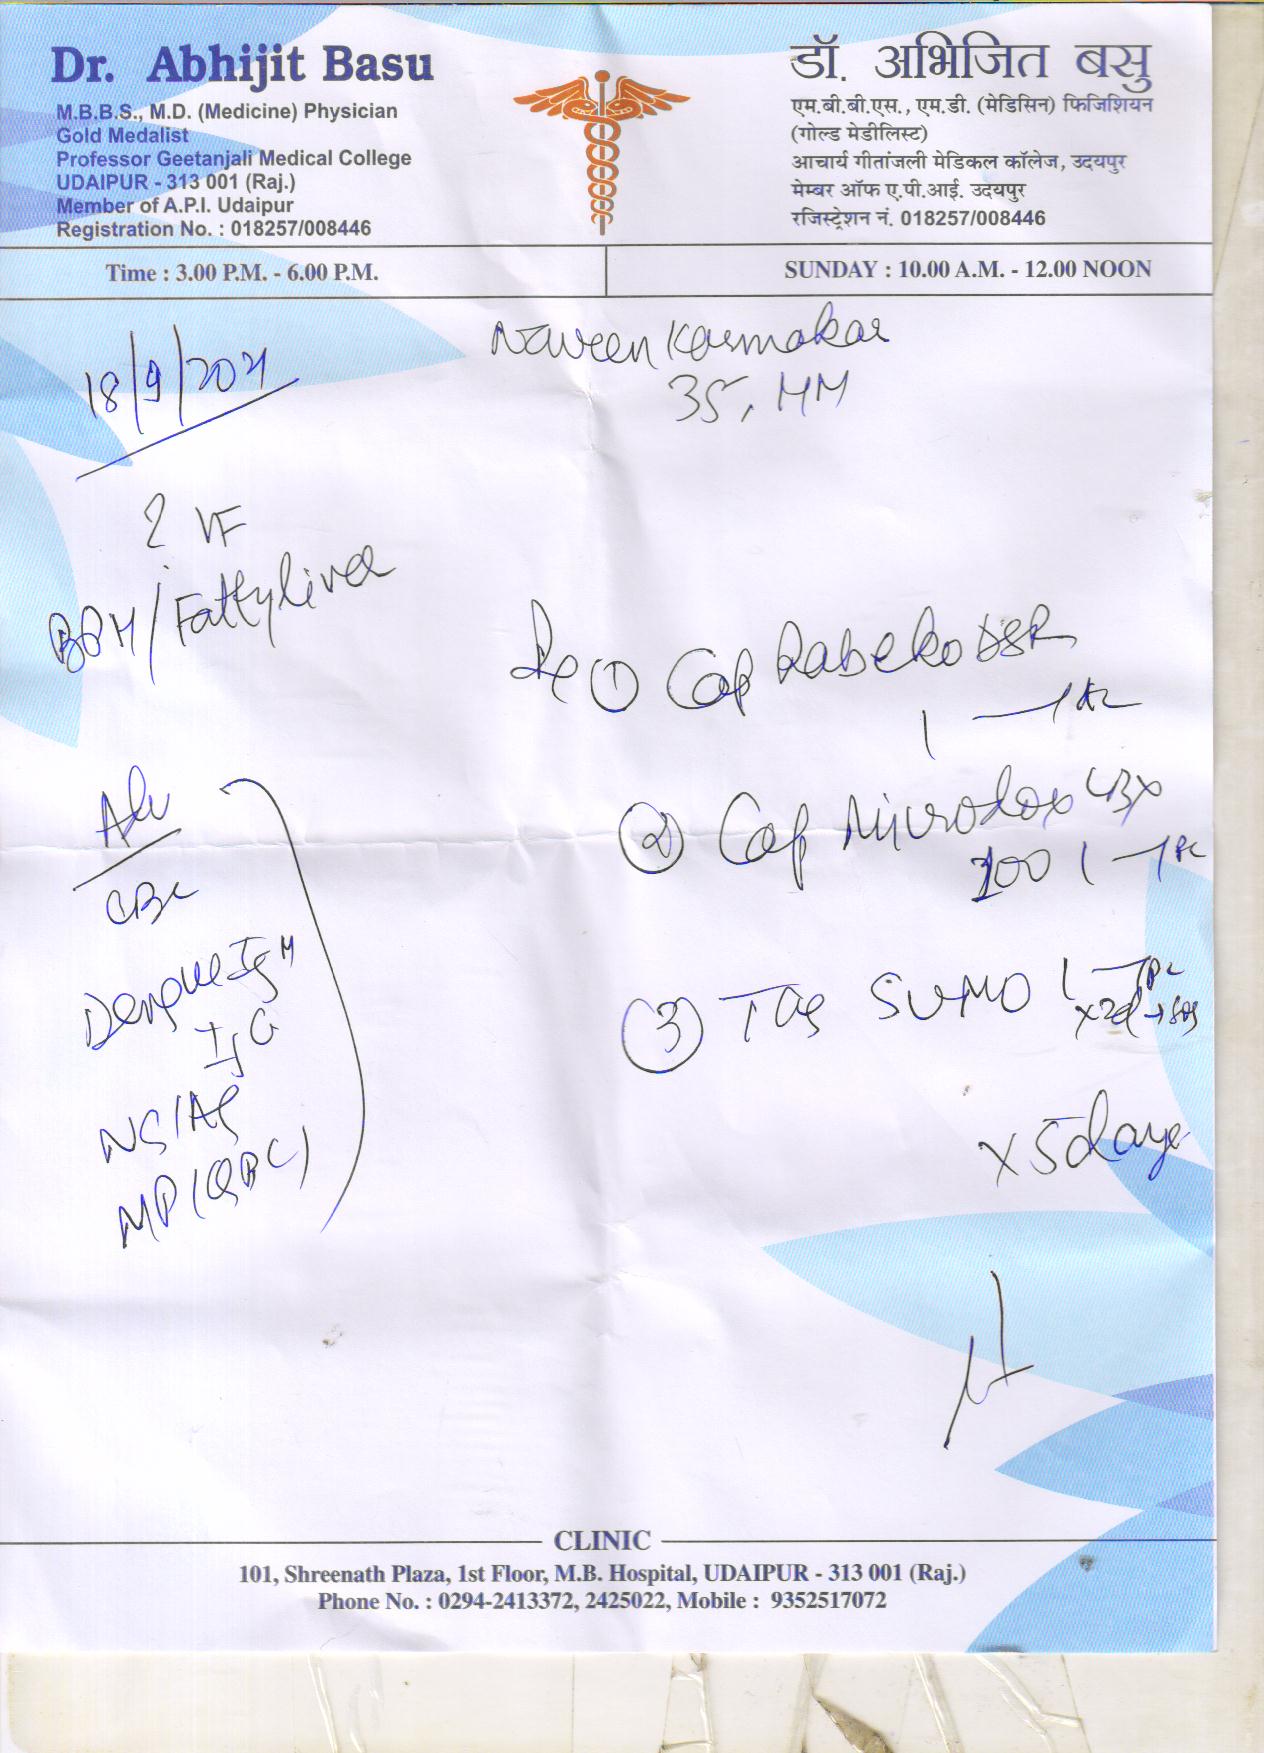 Dr. Abhijit Basu
M.B.B.S., M.D. (Medicine) Physician
Gold Medalist
Professor Geetanjali Medical College
UDAIPUR - 313 001 (Raj.)
Member of A.P.I. Udaipur
Registration No. : 018257/008446
डॉ. अभिजित बसु
एम.बी.बी.एस., एम.डी. (मेडिसिन) फिजिशियन
(गोल्ड मेडीलिस्ट)
आचार्य गीतांजली मेडिकल कॉलेज, उदयपुर
मेम्बर ऑफ ए.पी.आई. उदयपुर
रजिस्ट्रेशन नं. 018257/008446
Time : 3.00 P.M. - 6.00 P.M.
SUNDAY : 10.00 A.M. - 12.00 NOON
18/9/2021
Naveen Karmakar
35, MM
? VF
BPH/Fattyliver
Adv
CBC
Dengue IgM
IgG
NS1Ag
MP(QBC)
Rx ① Cap Rabeko DSR
1
② Cap Microdox LBX
100 1
③ Tab SUMO 1
x2d → SOS
x 5days
CLINIC
101, Shreenath Plaza, 1st Floor, M.B. Hospital, UDAIPUR - 313 001 (Raj.)
Phone No. : 0294-2413372, 2425022, Mobile : 9352517072